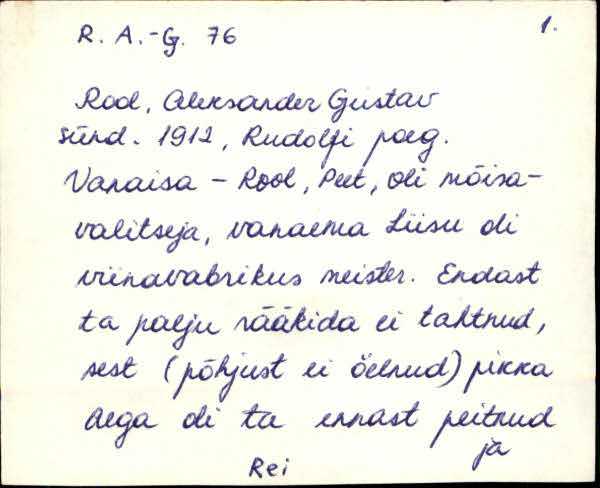 R. A.-G. 76
1.
Rool, Aleksander Gustav
sünd. 1912, Rudolfi poeg.
Vanaisa - Rool, Peet, oli mõisa-
valitseja, vanaema Liisu oli
viinavabrikus meister. Endast
ta palju rääkida ei tahtnud,
sest (põhjust ei öelnud) pikka
aega oli ta ennast peitnud
ja
Rei